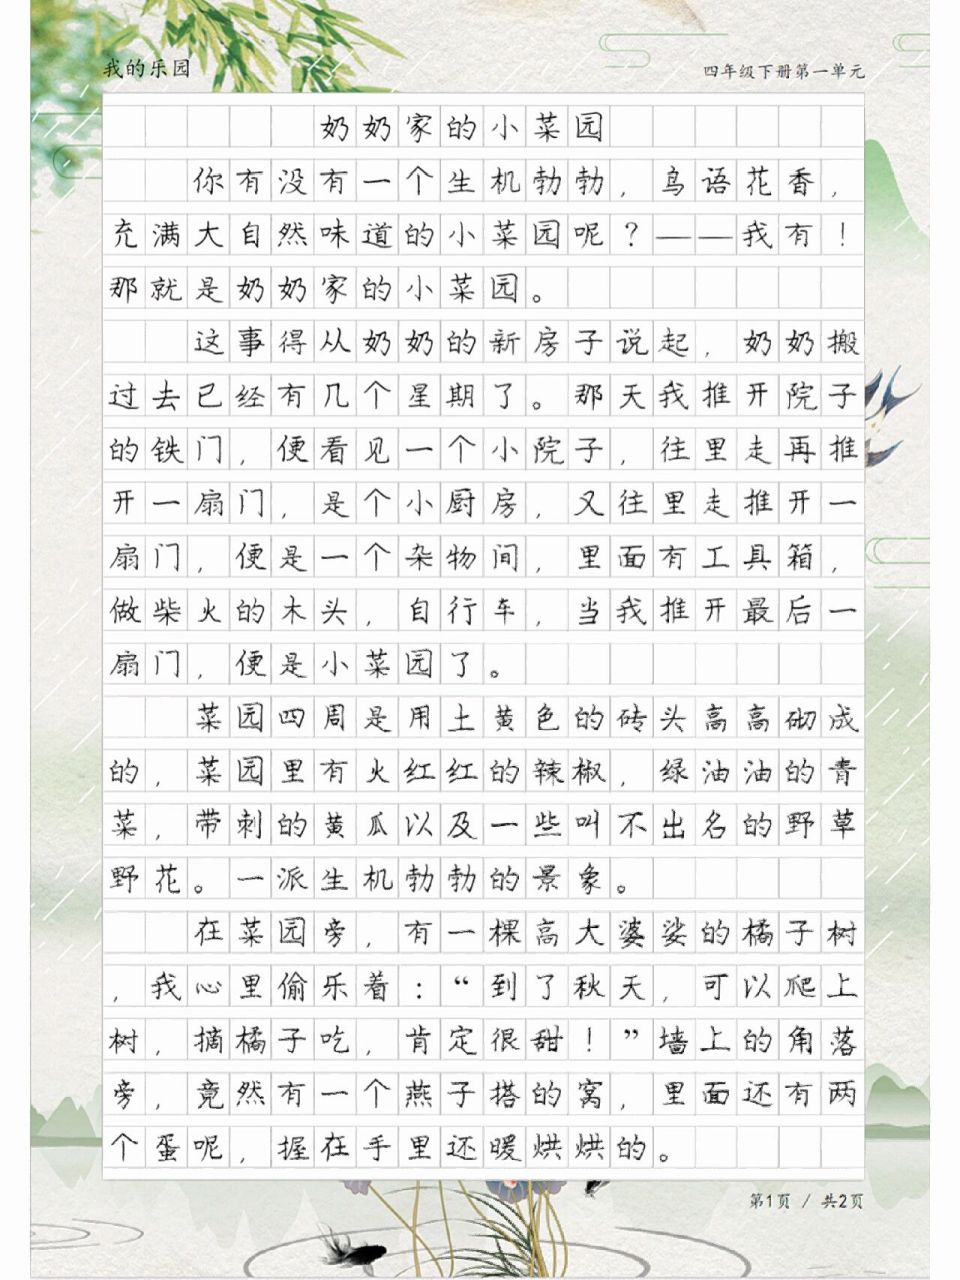 我的乐园
四年级下册第一单元
奶奶家的小菜园
你有没有一个生机勃勃，鸟语花香，
充满大自然味道的小菜园呢？——我有！
那就是奶奶家的小菜园。
这事得从奶奶的新房子说起，奶奶搬
过去已经有几个星期了。那天我推开院子
的铁门，便看见一个小院子，往里走再推
开一扇门，是个小厨房，又往里走推开一
扇门，便是一个杂物间，里面有工具箱，
做柴火的木头，自行车，当我推开最后一
扇门，便是小菜园了。
菜园四周是用土黄色的砖头高高砌成
的，菜园里有火红红的辣椒，绿油油的青
菜，带刺的黄瓜以及一些叫不出名的野草
野花。一派生机勃勃的景象。
在菜园旁，有一棵高大婆娑的橘子树
，我心里偷乐着：“到了秋天，可以爬上
树，摘橘子吃，肯定很甜！”墙上的角落
旁，竟然有一个燕子搭的窝，里面还有两
个蛋呢，握在手里还暖烘烘的。
第1页 / 共2页